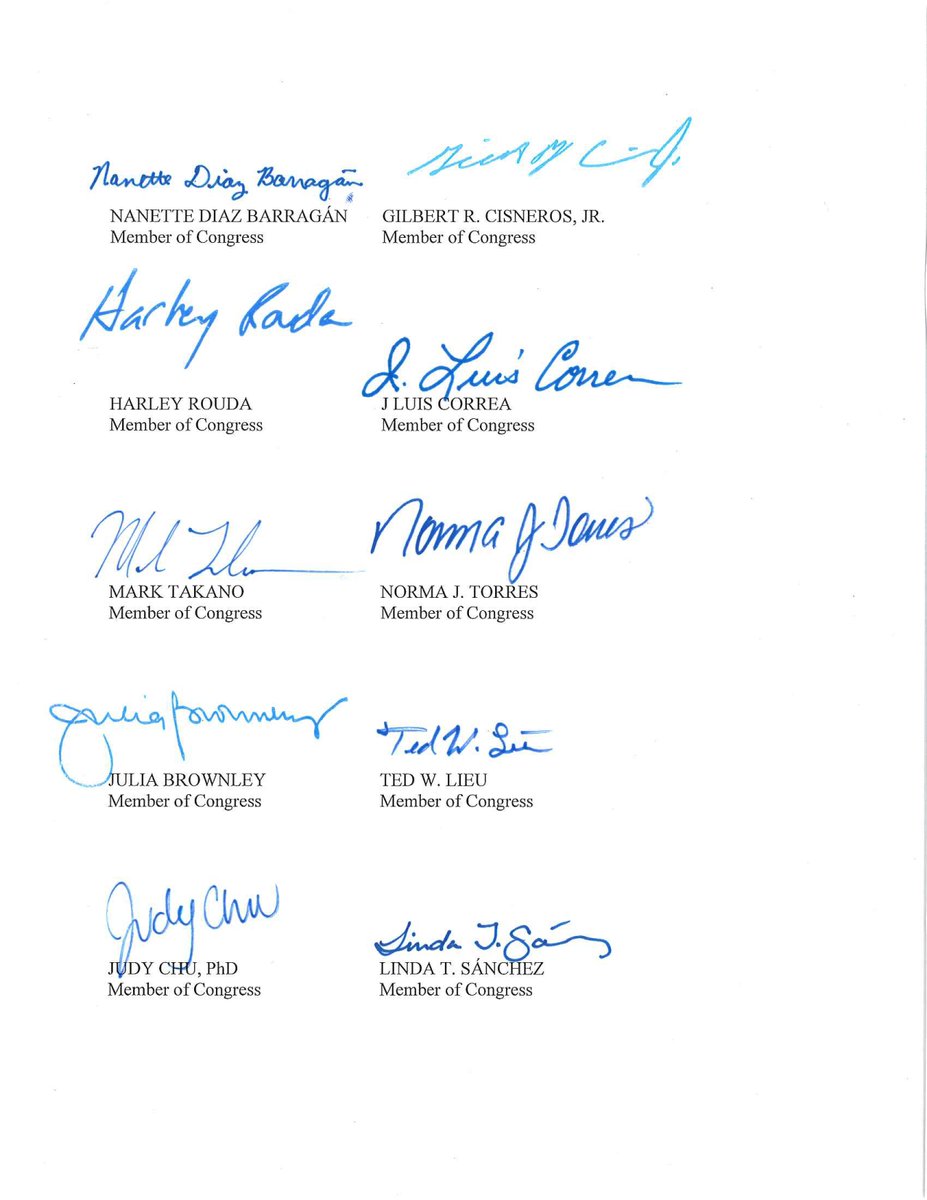 Nanette Diaz Barragán
NANETTE DIAZ BARRAGÁN GILBERT R. CISNEROS, JR.
Member of Congress Member of Congress
Harley Rouda
J. Luis Correa
HARLEY ROUDA J LUIS CORREA
Member of Congress Member of Congress
Norma J Torres
MARK TAKANO NORMA J. TORRES
Member of Congress Member of Congress
Julia Brownley
Ted W. Lieu
JULIA BROWNLEY TED W. LIEU
Member of Congress Member of Congress
Judy Chu
Linda T. Sánchez
JUDY CHU, PhD LINDA T. SÁNCHEZ
Member of Congress Member of Congress